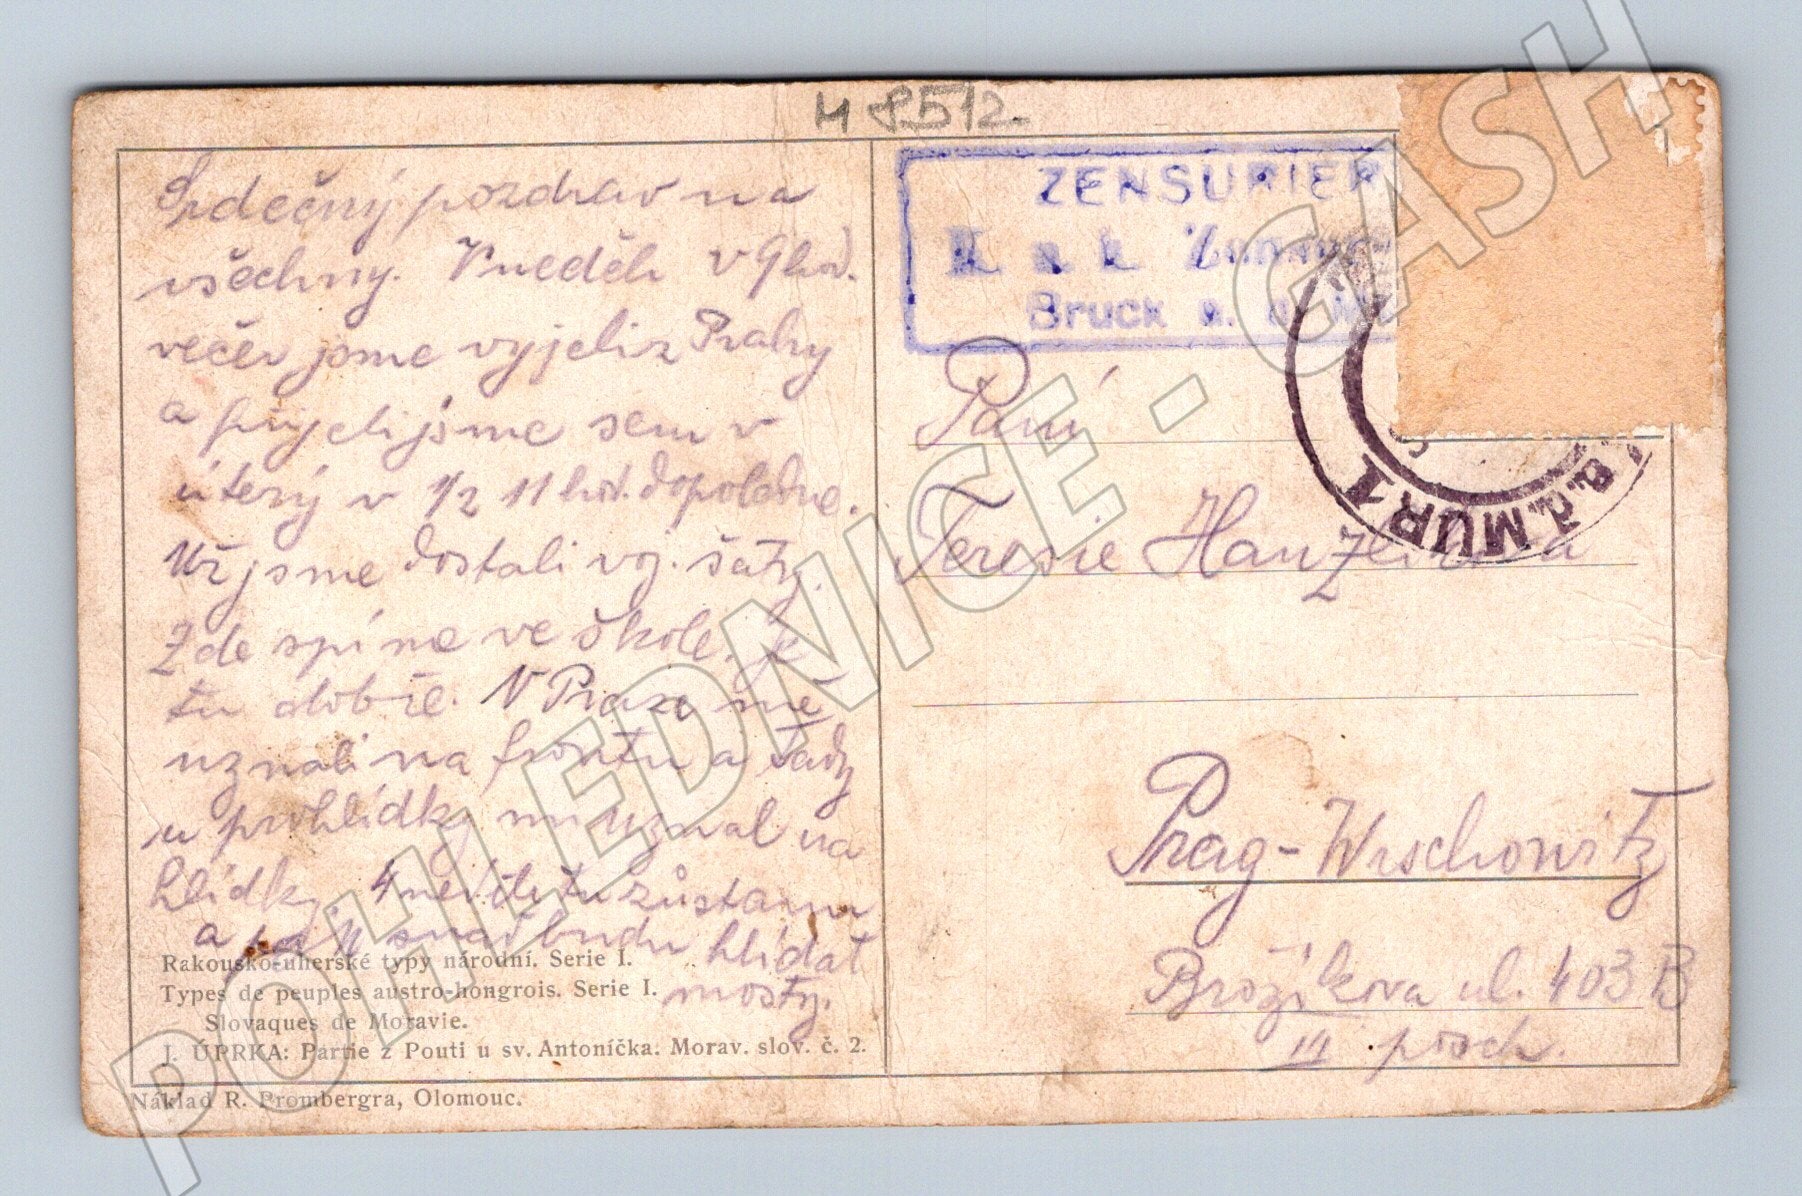 H 8512
Srdečný pozdrav na
všechny. V neděli v 9 hod.
večer jsme vyjeli z Prahy
a přijeli jsme sem v
úterý v 1/2 11 hod. dopoledne.
Už jsme dostali voj. šaty.
Zde spíme ve škole. Je
tu dobře. V Praze mě
uznali na frontu a tady
u prohlídky mi uznal na
hlídky. 4 neděle tu zůstanu
a pak snad budu hlídat
mosty.
Rakousko-uherské typy národní. Serie I.
Types de peuples austro-hongrois. Serie I.
Slovaques de Moravie.
J. ÚPRKA: Partie z Pouti u sv. Antoníčka. Morav. slov. č. 2.
Náklad R. Prombergra, Olomouc.
ZENSURIER
K. u. k.
Bruck a. d.
a.d. MUR 1
Paní
Teresie
Prag-Wrschowitz
Brožíkova ul. 403 B
II posch.
POHLEDNICE - CASH